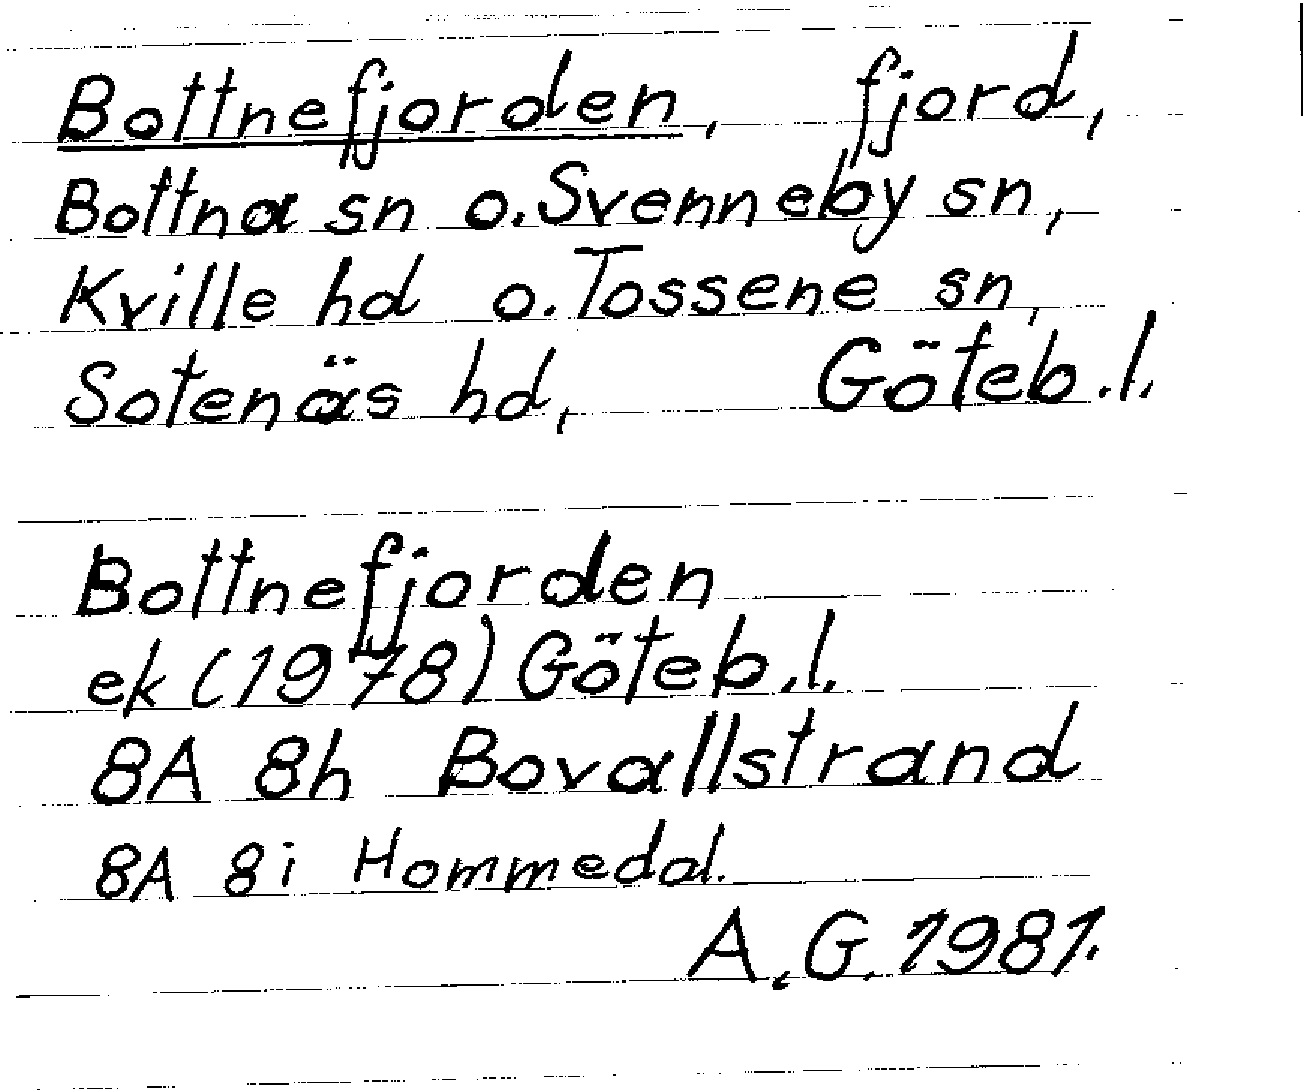 Bottnefjorden, fjord,
Bottna sn o. Svenneby sn,
Kville hd o. Tossene sn,
Sotenäs hd, Göteb.l.
Bottnefjorden
ek (1978) Göteb.l.
8A 8h Bovallstrand
8A 8i Hommedal.
A.G. 1981.